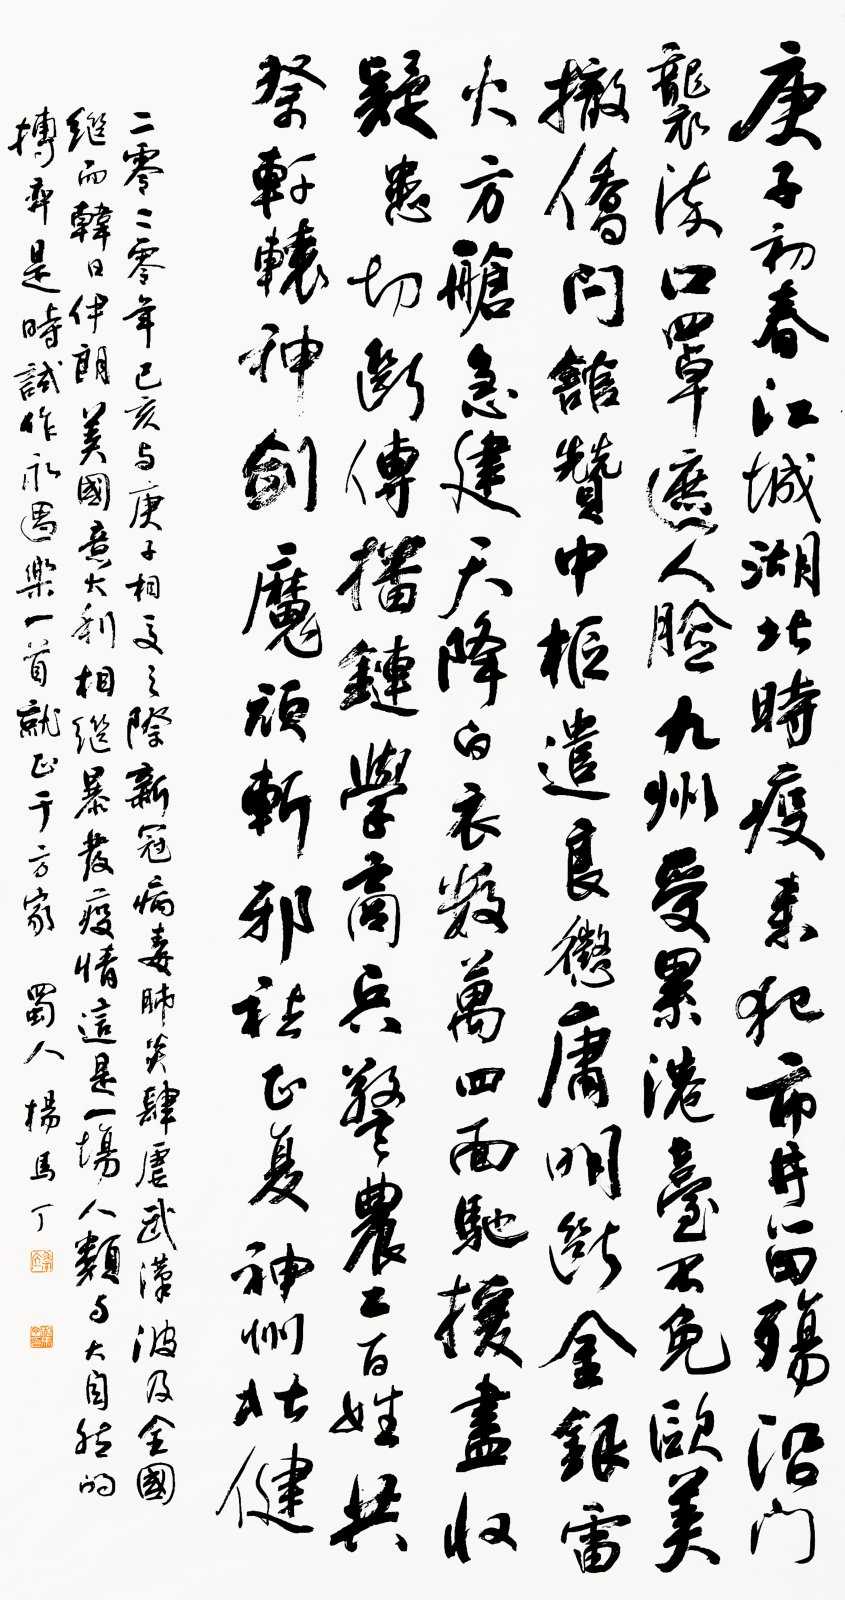 庚子初春江城湖北時疫来犯市井留殤沿門
襲淡口罩遮人臉九州受累港臺不免歐美
撤僑門館贊中樞遣良懲庸明断金銀雷
火方艙急建天降白衣数萬四面馳援盡收
疑患切断傳播鏈學商兵警農工百姓共
祭軒轅神劍魔頑斬邪祛正复神州壯健
二零二零年己亥与庚子相交之際新冠病毒肺炎肆虐武漢波及全國
继而韓日伊朗美國意大利相继暴發疫情這是一場人類与大自然的
搏弈是時試作永遇樂一首就正于方家 蜀人楊馬丁